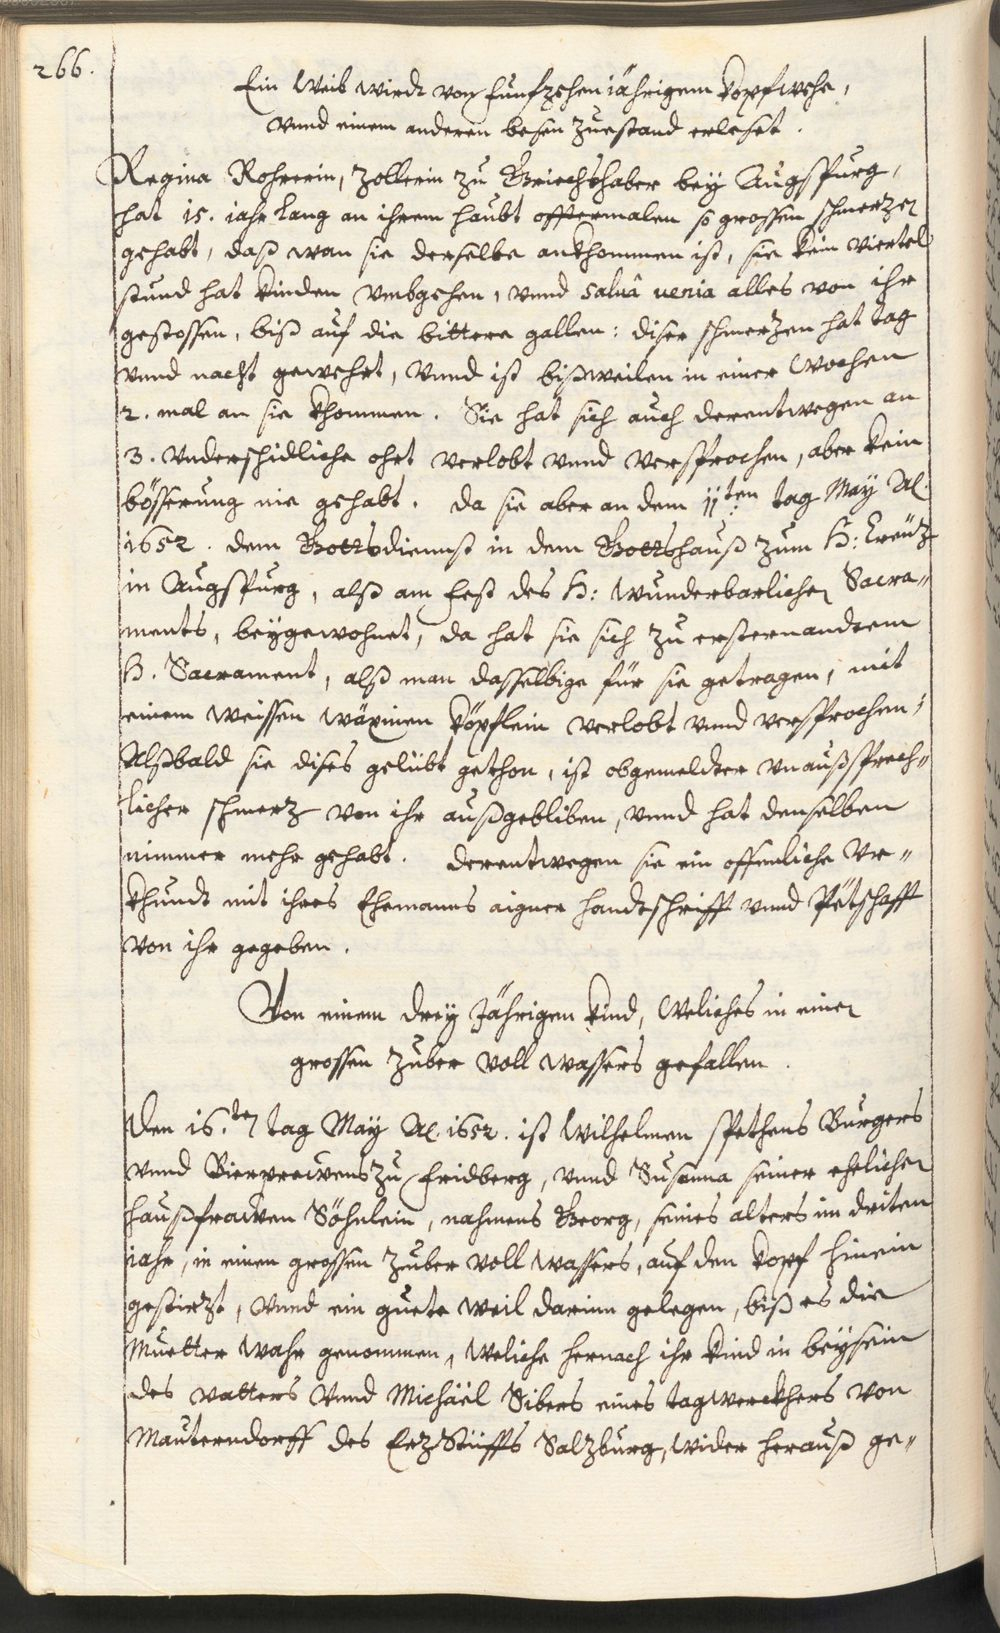 266.
Ein Weib wirdt von funfzehen jährigem kopfwehe,
vnnd einem anderen besen zuestand erleset.
Regina Rohrerin, Zollerin zu Griechshaber bey Augspurg,
hat 15. iahr lang an ihrem haubt offtermalen so grossen schmerzen
gehabt, daß wan sie derselbe ankhommen ist, sie kein viertel
stund hat kinden vmbgehen, vnnd salua uenia alles von ihr
gestossen, biß auf die bittere gallen: diser schmerzen hat tag
vnnd nacht gewehrt, vnnd ist bißweilen in einer wochen
2. mal an sie khommen. Sie hat sich auch derentwegen an
3. vnderschidliche ohrt verlobt vnnd versprochen, aber kein
bösserung nie gehabt. da sie aber an dem 11ten tag May Ao.
1652. dem Gottsdiennst in dem Gottshauß zum H: Creüz
in Augspurg, alß am fest des H: wunderbarlichen Sacra-
ments, beygewohnet, da hat sie sich zu ersternandtem
H. Sacrament, alß man dasselbige für sie getragen, mit
einem weissen wäxinen köpflein verlobt vnnd versprochen,
Alßbald sie dises gelübt gethon, ist obgemeldter vnaußsprech-
licher schmerz von ihr außgebliben, vnnd hat denselben
nimmer mehr gehabt. derentwegen sie ein offentliche vr-
khundt mit ihres Ehemanns aigner handtschrifft vnnd Petschafft
von ihr gegeben.
Von einem drey Jährigen kind, weliches in einen
grossen zuber voll wassers gefallen.
Den 16.ten tag May Ao. 1652. ist Wilhelmen Spethens Burgers
vnnd Bierprewens zu Fridberg, vnnd Susanna seiner ehelichen
haußfrawen Söhnlein, nahmens Georg, seines alters im driten
iahr, in einen grossen zuber voll wassers, auf den kopf hinein
gestirzt, vnnd ein guete weil darinn gelegen, biß es die
Muetter wahr genommen, weliche hernach ihr kind in beysein
des vatters vnnd Michäel Sibers eines tagwerckhers von
Mauterndorff des ErzStiffts Salzburg, wider herauß ge-